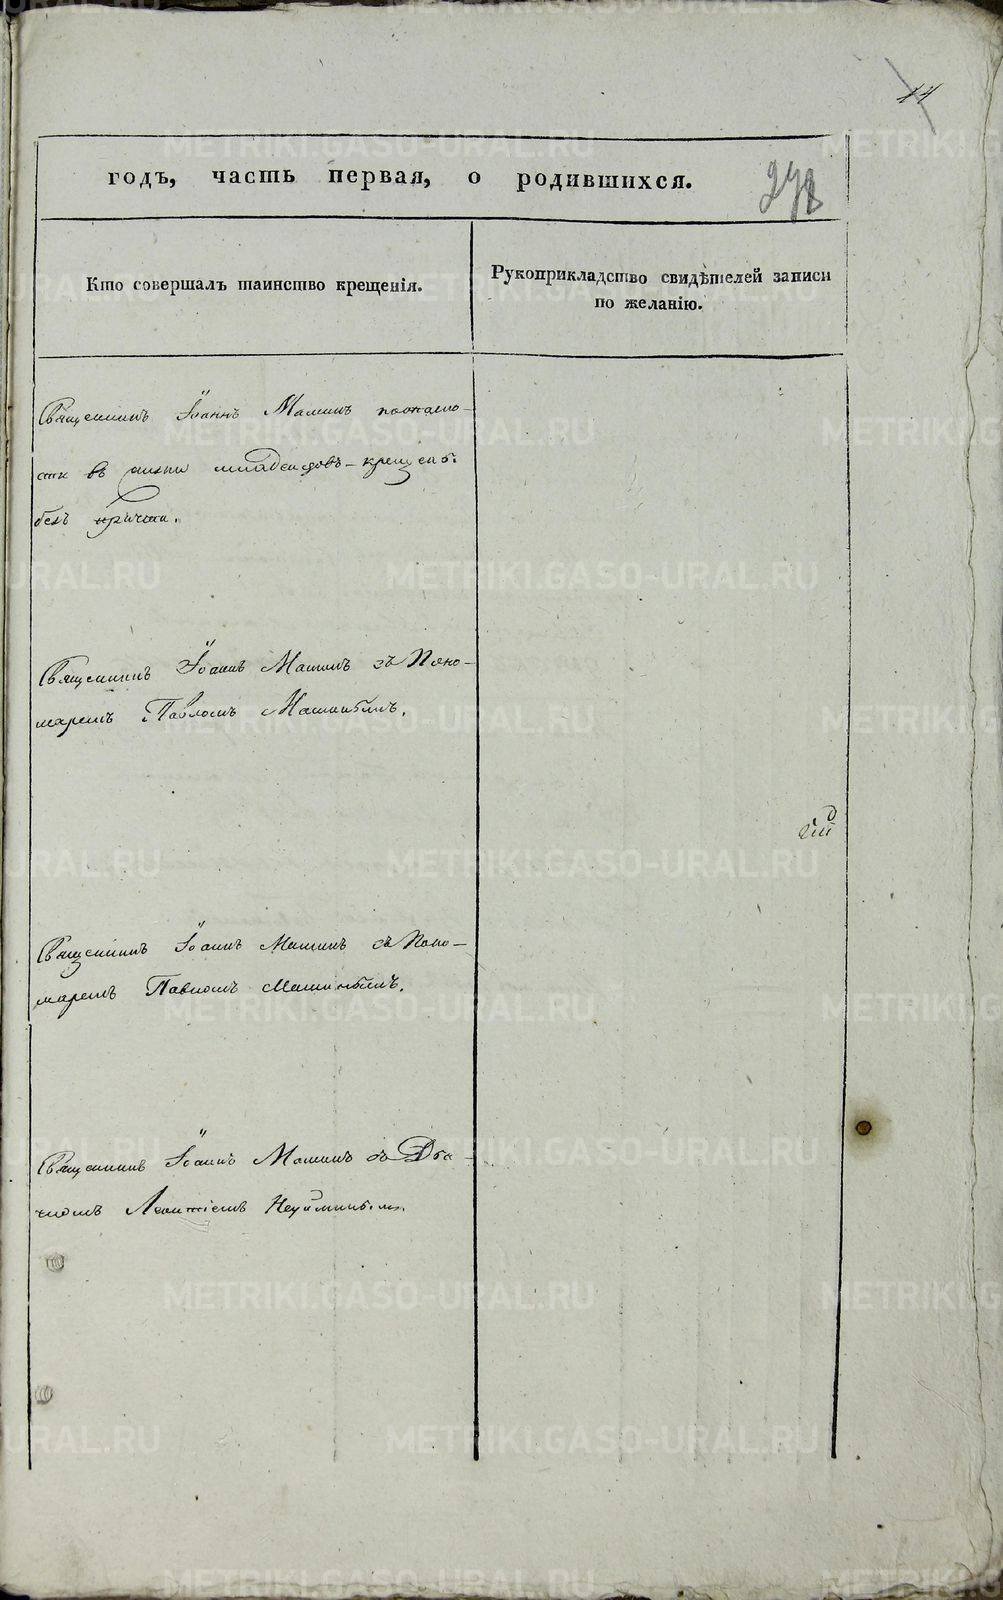 годъ, часть первая, о родившихся.
Кто совершалъ таинство крещенія.
Рукоприкладство свидѣтелей записи
по желанію.
Священникъ Іоаннъ Мамин
въ младенцовъ крещенъ
безъ причта.
Священникъ Іоаннъ Маминъ съ Поно-
маремъ Павломъ
Священникъ Іоаннъ Маминъ съ Поно-
маремъ Павломъ
Священникъ Іоаннъ Маминъ съ Діа-
кономъ Леонтіемъ Неуйминымъ.
METRIKI.GASO-URAL.RU